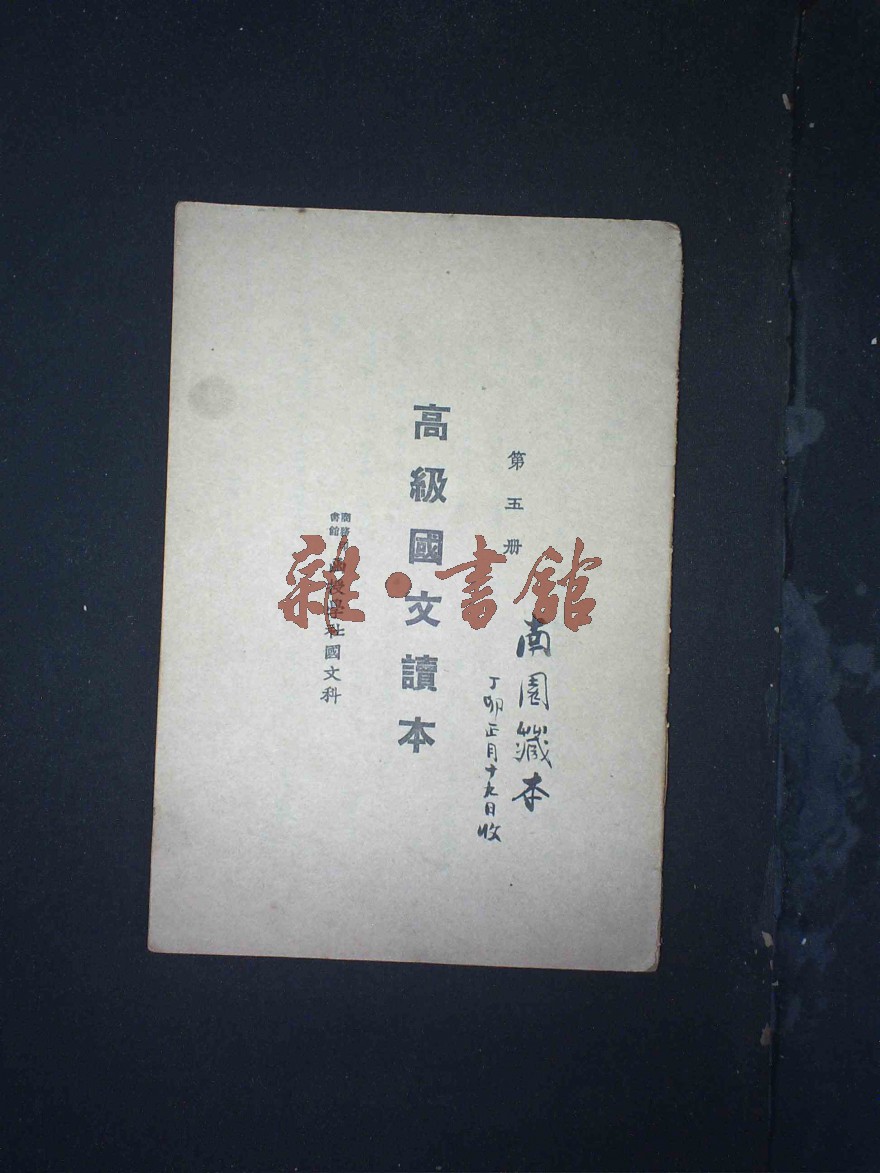 第五册
南園藏本
丁卯正月十九日收
高級國文讀本
商務書館函授學社國文科
雜·書館